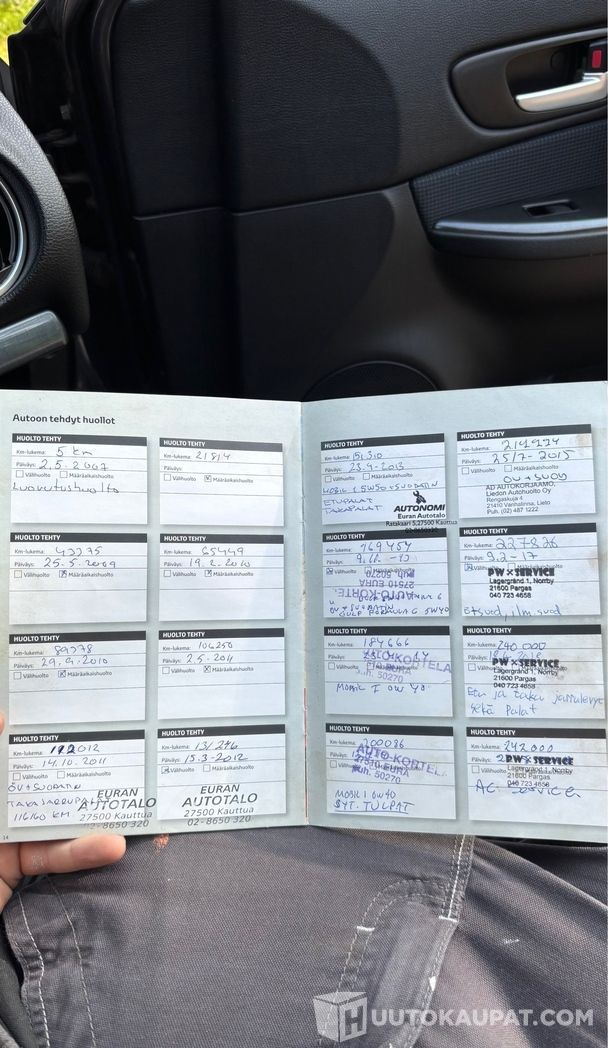 Autoon tehdyt huollot
HUOLTO TEHTY
Km-lukema: 5 km
Päiväys: 2.5.2007
Välihuolto Määräaikaishuolto
Luovutushuolto
HUOLTO TEHTY
Km-lukema: 21814
Päiväys:
Välihuolto Määräaikaishuolto
HUOLTO TEHTY
Km-lukema: 43275
Päiväys: 25.5.2009
Välihuolto Määräaikaishuolto
HUOLTO TEHTY
Km-lukema: 65449
Päiväys: 19.2.2010
Välihuolto Määräaikaishuolto
HUOLTO TEHTY
Km-lukema: 89278
Päiväys: 29.9.2010
Välihuolto Määräaikaishuolto
HUOLTO TEHTY
Km-lukema: 106250
Päiväys: 2.5.2011
Välihuolto Määräaikaishuolto
HUOLTO TEHTY
Km-lukema:
Päiväys: 14.10.2011
Välihuolto Määräaikaishuolto
ÖV+SUODATIN
116160 KM
EURAN
AUTOTALO
27500 Kauttua
02-8650 320
HUOLTO TEHTY
Km-lukema: 131246
Päiväys: 15.3-2012
Välihuolto Määräaikaishuolto
EURAN
AUTOTALO
27500 Kauttua
02-8650 320
14
HUOLTO TEHTY
Km-lukema: 151310
Päiväys: 23.4-2013
Välihuolto Määräaikaishuolto
MOBIL 1 5W30+SUODATIN
ETUPALAT
TAKAPALAT
AUTONOMI
Euran Autotalo
Ratakaari 5,27500 Kauttua
HUOLTO TEHTY
Km-lukema:
Päiväys: 25/7-2015
Välihuolto Määräaikaishuolto
ÖV+SUOV
AD AUTOKORJAAMO,
Liedon Autohuolto Oy
Rengaskuja 4
21410 Vanhalinna, Lieto
Puh. (02) 487 1222
HUOLTO TEHTY
Km-lukema: 169454
Päiväys:
Välihuolto
puh. 50270
27510 EURA
AUTO-KORTE
ÖV+SUODATIN
GULF FORMULA G 5W40
HUOLTO TEHTY
Km-lukema: 227826
Päiväys: 9.2-17
Välihuolto
PW x SERVICE
Lagergränd 1, Norrby
21600 Pargas
040 723 4658
Etsuod, ilm.suod
HUOLTO TEHTY
Km-lukema: 184666
Päiväys:
Välihuolto
AUTO-KORTELA
puh. 50270
Mobil 1 0W40
HUOLTO TEHTY
Km-lukema: 240 000
Päiväys:
Välihuolto
PW x SERVICE
Lagergränd 1, Norrby
21600 Pargas
040 723 4658
Etu ja taka jarrulevyt
sekä palat
HUOLTO TEHTY
Km-lukema: 200086
AUTO-KORTELA
27510 EURA
puh. 50270
Välihuolto
MOBIL 1 0W40
SYT. TULPAT
HUOLTO TEHTY
Km-lukema: 242000
Päiväys:
Välihuolto
PW x SERVICE
Lagergränd 1, Norrby
21600 Pargas
040 723 4658
AC-service
HUUTOKAUPAT.COM